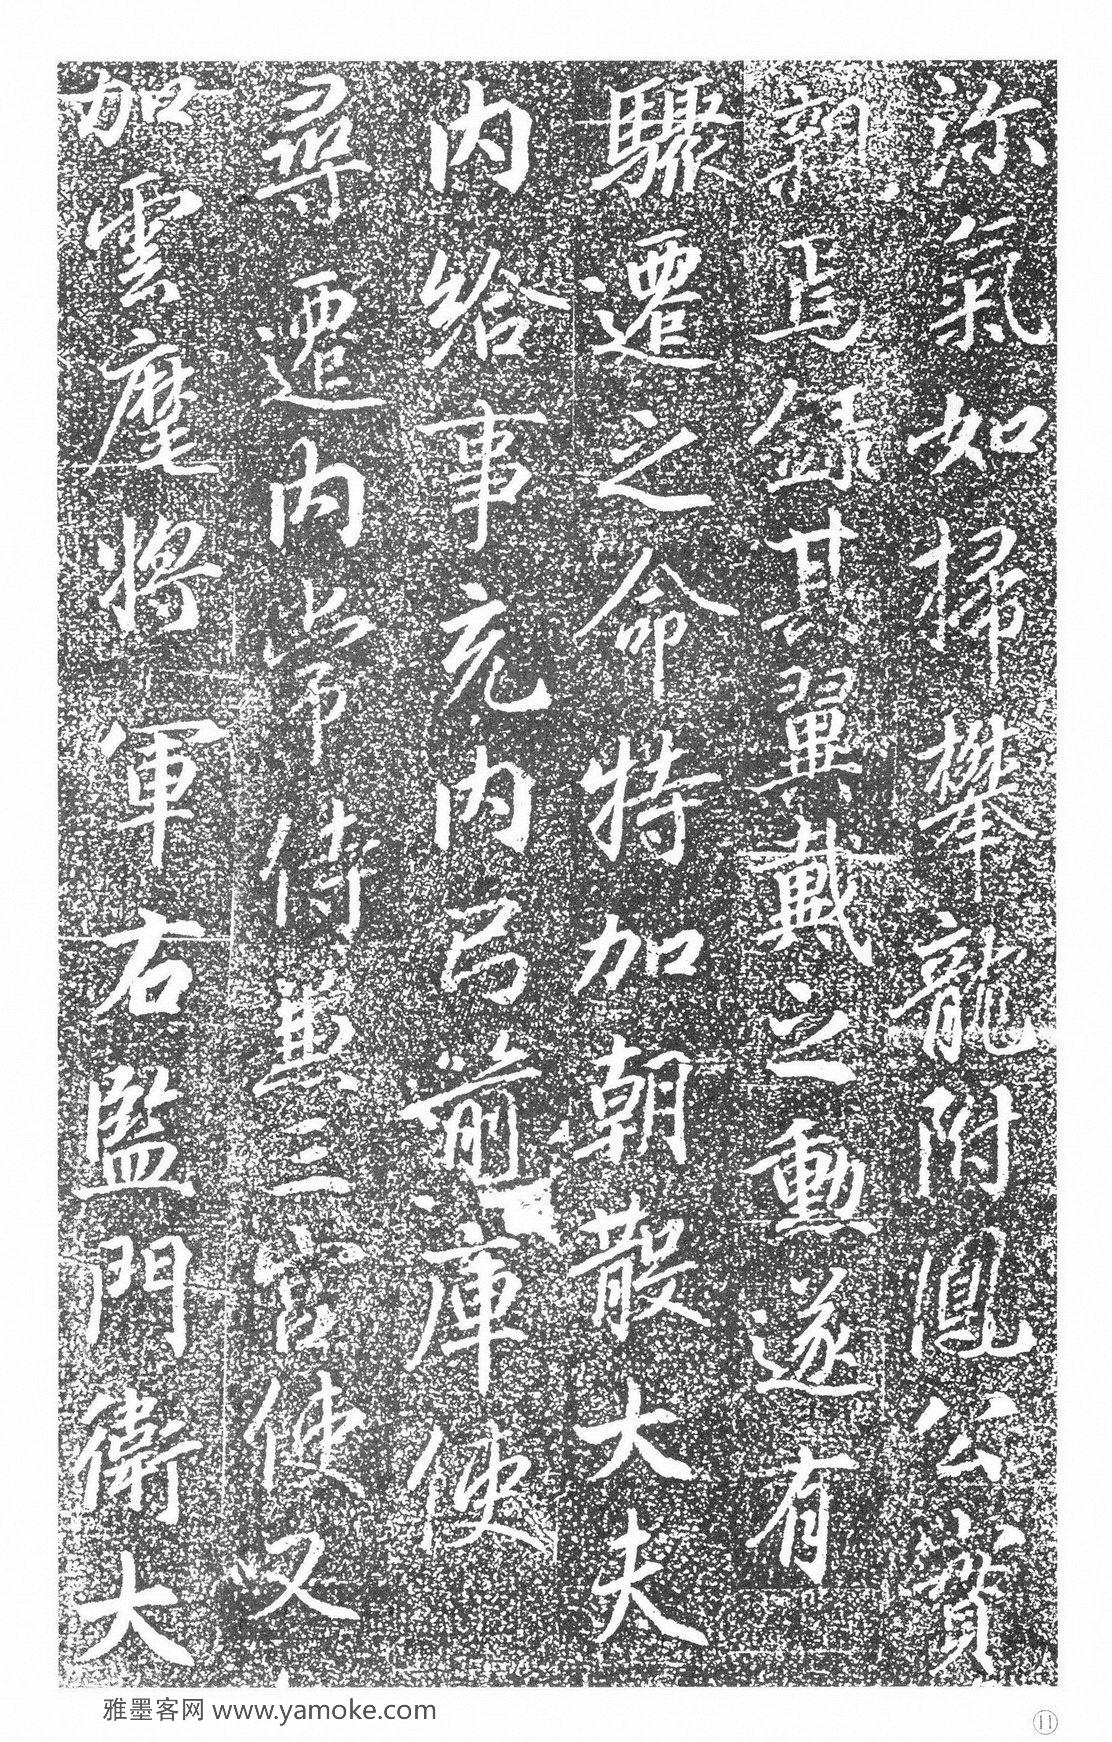 沴氣如掃攀龍附鳳公實
親焉錄其翼戴之勳遂有
驟遷之命特加朝散大夫
內給事充內弓箭庫使
尋遷內常侍兼三宮使又
加雲麾將軍右監門衛大
雅墨客网 www.yamoke.com
11